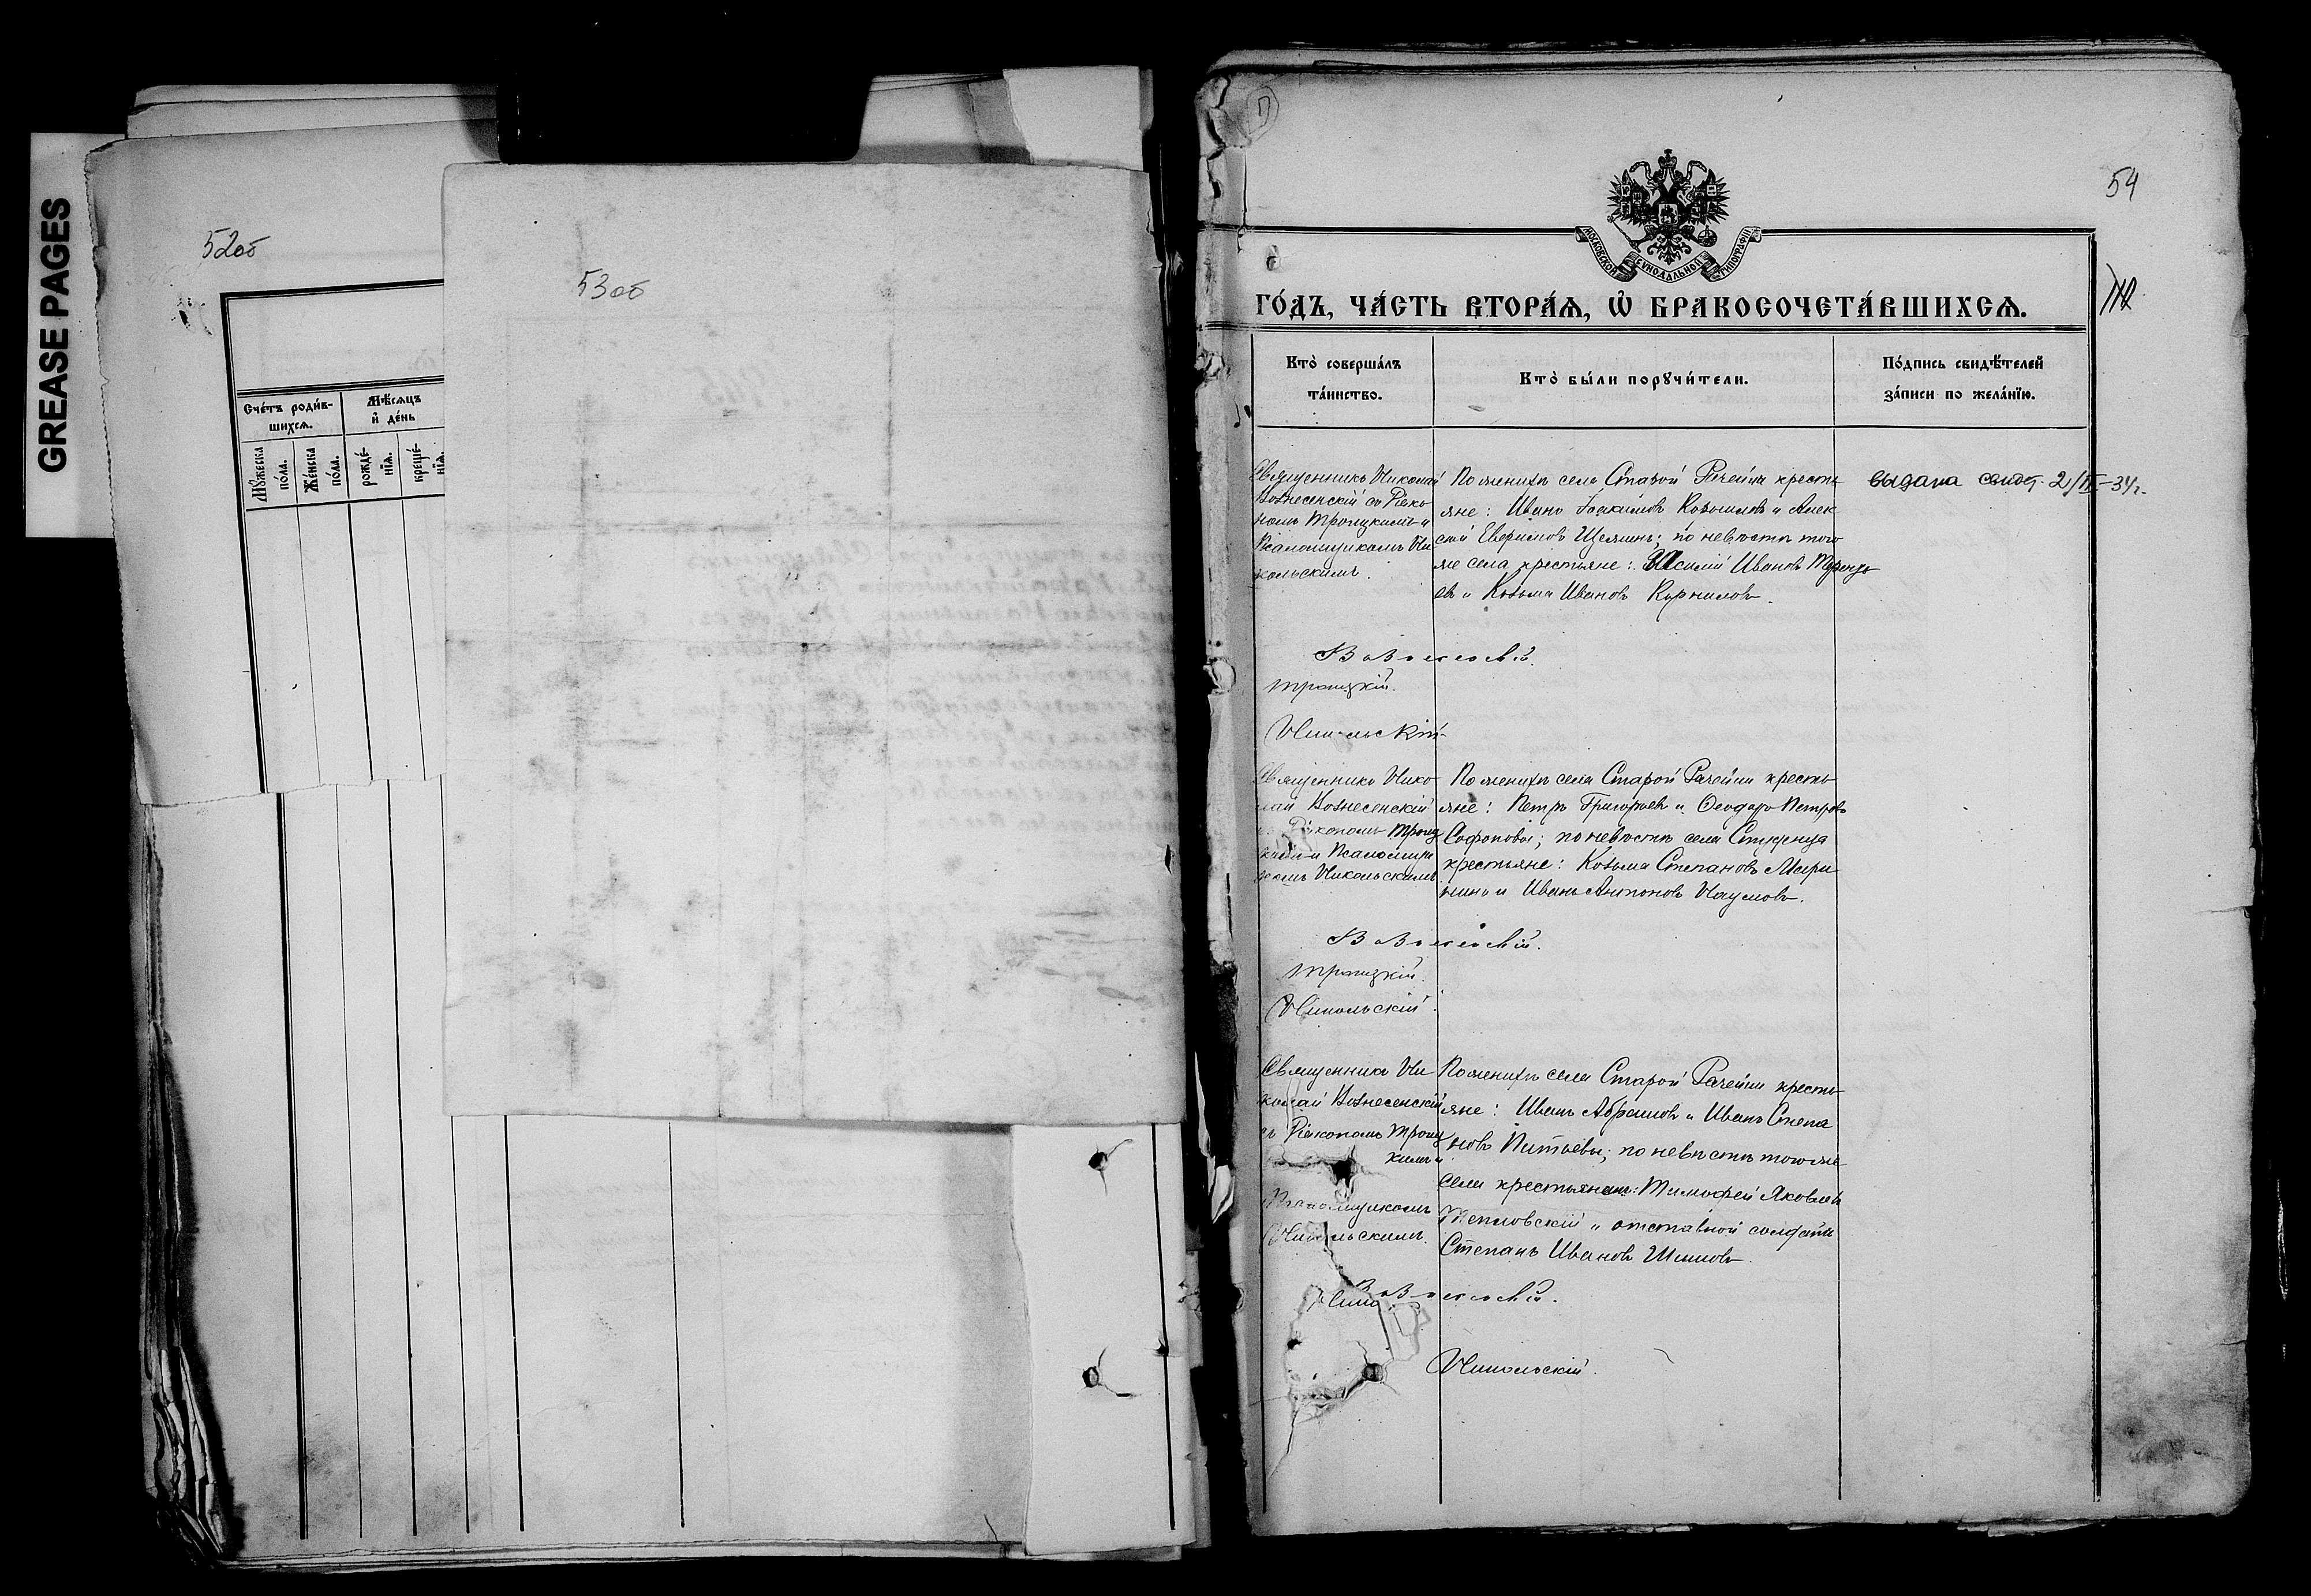 GREASE PAGES
52об
53об
Счетъ родив-
шихся.
Мѣсяцъ
и день
Мужеска
пола.
Женска
пола.
рожде-
нія.
креще-
нія.
54
МОСКОВСКОЙ СѴНОДАЛЬНОЙ ТИПОГРАФІИ
ГО́ДЪ, ЧА́СТЬ ВТОРА́Ѧ, Ѽ БРАКОСОЧЕТА́ВШИХСѦ.
Кто̀ соверша́лъ
та́инство.
Кто̀ бы́ли порꙋчи́тели.
По́дпись свидѣ́телей
за́писи по жела́нїю.
Священникъ Николай
Вознесенскій съ Діако
номъ Троицкимъ и
Псаломщикомъ Ни
кольскимъ.
По женихѣ села Старой Рачейки кресть
яне: Иванъ Іоакимовъ Ковшовъ и Алек
сѣй Ефремовъ Щелинъ; по невѣстѣ того
же села крестьяне: Иванов
евъ и Козьма Ивановъ Корниловъ.
выдана свид. 2/ -34г.
Вознесенскій.
Троицкій.
Никольскій
Священникъ Нико
лай Вознесенскій
Діакономъ Троиц
кимъ и Псаломщи
комъ Никольскимъ
По женихѣ села Старой Рачейки кресть
яне: Петръ Григорьевъ и Ѳеодоръ Петровъ
Софоновы; по невѣстѣ села Студенца
крестьяне: Козьма Степановъ Мари
нинъ и Иванъ Антоновъ Наумовъ.
Вознесенскій.
Троицкій.
Никольскій.
Священникъ Ни
колай Вознесенскій
съ Діакономъ Троиц
кимъ и
Псаломщикомъ
Никольскимъ.
По женихѣ села Старой Рачейки кресть
яне: Иванъ Абрамовъ и Иванъ Степа
новъ Питьевы; по невѣстѣ того же
села крестьянинъ: Тимофей Яковлевъ
Тепловскій и отставной солдатъ
Степанъ Ивановъ Шиловъ.
Вознесенскій.
Никольскій.